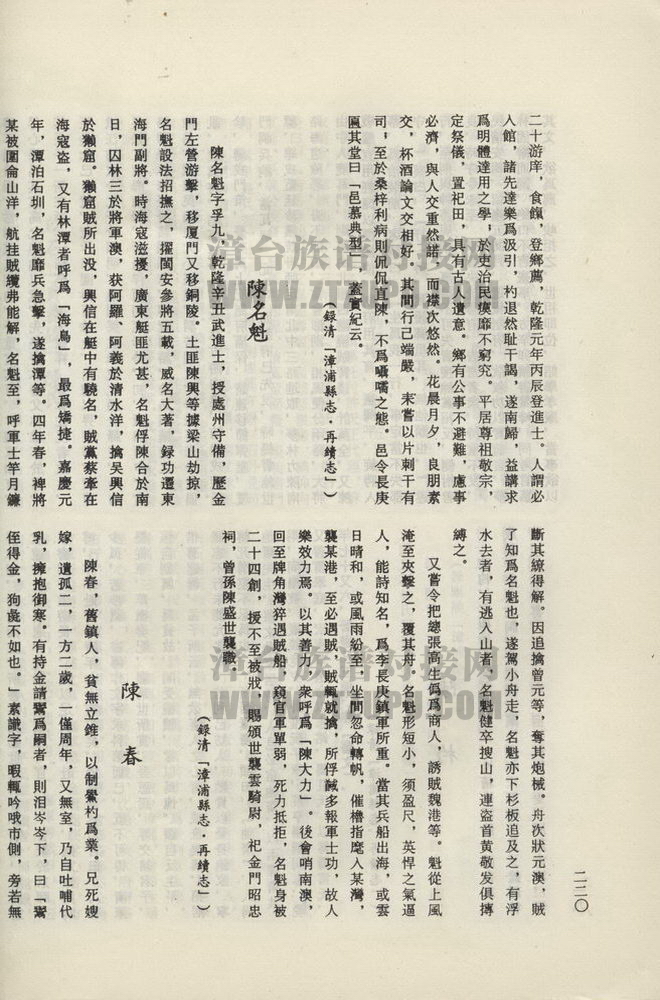 二十游庠，食餼，登鄉薦，乾隆元年丙辰登進士。人謂必
入館，諸先達樂爲汲引，杓退然耻干謁，遂南歸，益講求
爲明體達用之學，於吏治民瘼靡不窮究。平居尊祖敬宗，
定祭儀，置祀田，具有古人遺意。鄉有公事不避難，慮事
必濟，與人交重然諾，而襟次悠然。花晨月夕，良朋素
交，杯酒論文交相好。其間行己端嚴，未嘗以片刺干有
司，至於桑梓利病則侃侃直陳，不爲囁嚅之態。邑令長庚
匾其堂曰「邑慕典型」，蓋實紀云。
（録清「漳浦縣志·再續志」）
陳名魁
陳名魁字孚九，乾隆辛丑武進士，授處州守備，歷金
門左營游擊，移厦門又移銅陵。土匪陳興等據梁山劫掠，
名魁設法招撫之，擢閩安參將五載，威名大著，録功遷東
海門副將。時海寇滋擾，廣東艇匪尤甚，名魁俘陳合於南
日，囚林三於將軍澳，获阿羅、阿義於清水洋，擒吴興信
於獺窟。獺窟賊所出没，興信在艇中有驍名，賊黨蔡牽在
海寇盗，又有林潭者呼爲「海鳥」，最爲矯捷。嘉慶元
年，潭泊石圳，名魁靡兵急擊，遂擒潭等。四年春，裨將
某被圍侖山洋，航挂賊纜弗能解，名魁至，呼軍士竿月鐮
斷其繚得解。因追擒曾元等，奪其炮械。舟次狀元澳，賊
了知爲名魁也，遂駕小舟走，名魁亦下杉板追及之，有浮
水去者，有逃入山者，名魁健卒搜山，連盗首黄敬发俱摶
縛之。
又嘗令把總張高生僞爲商人，誘賊魏港等。魁從上風
淹至夾擊之，覆其舟。名魁形短小，須盈尺，英悍之氣逼
人，能詩知名，爲李長庚鎮軍所重。當其兵船出海，或雲
日晴和，或風雨紛至，坐間忽命轉帆，催櫓指麾入某灣，
襲某港，至必遇賊，賊輒就擒，所俘馘多報軍士功，故人
樂效力焉。以其善力，衆呼爲「陳大力」。後會哨南澳，
回至牌角灣猝遇賊船，窺官軍單弱，死力抵拒，名魁身被
二十四創，授不至被戕，賜頒世襲雲騎尉，祀金門昭忠
祠，曾孫陳盛世襲職。
（録清「漳浦縣志·再續志」）
陳春
陳春，舊鎮人，貧無立錐，以制鱟杓爲業。兄死嫂
嫁，遺孤二，一方二歲，一僅周年，又無室，乃自吐哺代
乳，擁抱御寒。有持金請鬻爲嗣者，則泪岑岑下，曰「鬻
侄得金，狗彘不如也。」素識字，暇輒吟哦市側，旁若無
二二〇
漳台族谱对接网
WWW.ZTZ
漳台族谱对接网
WWW.ZTZ